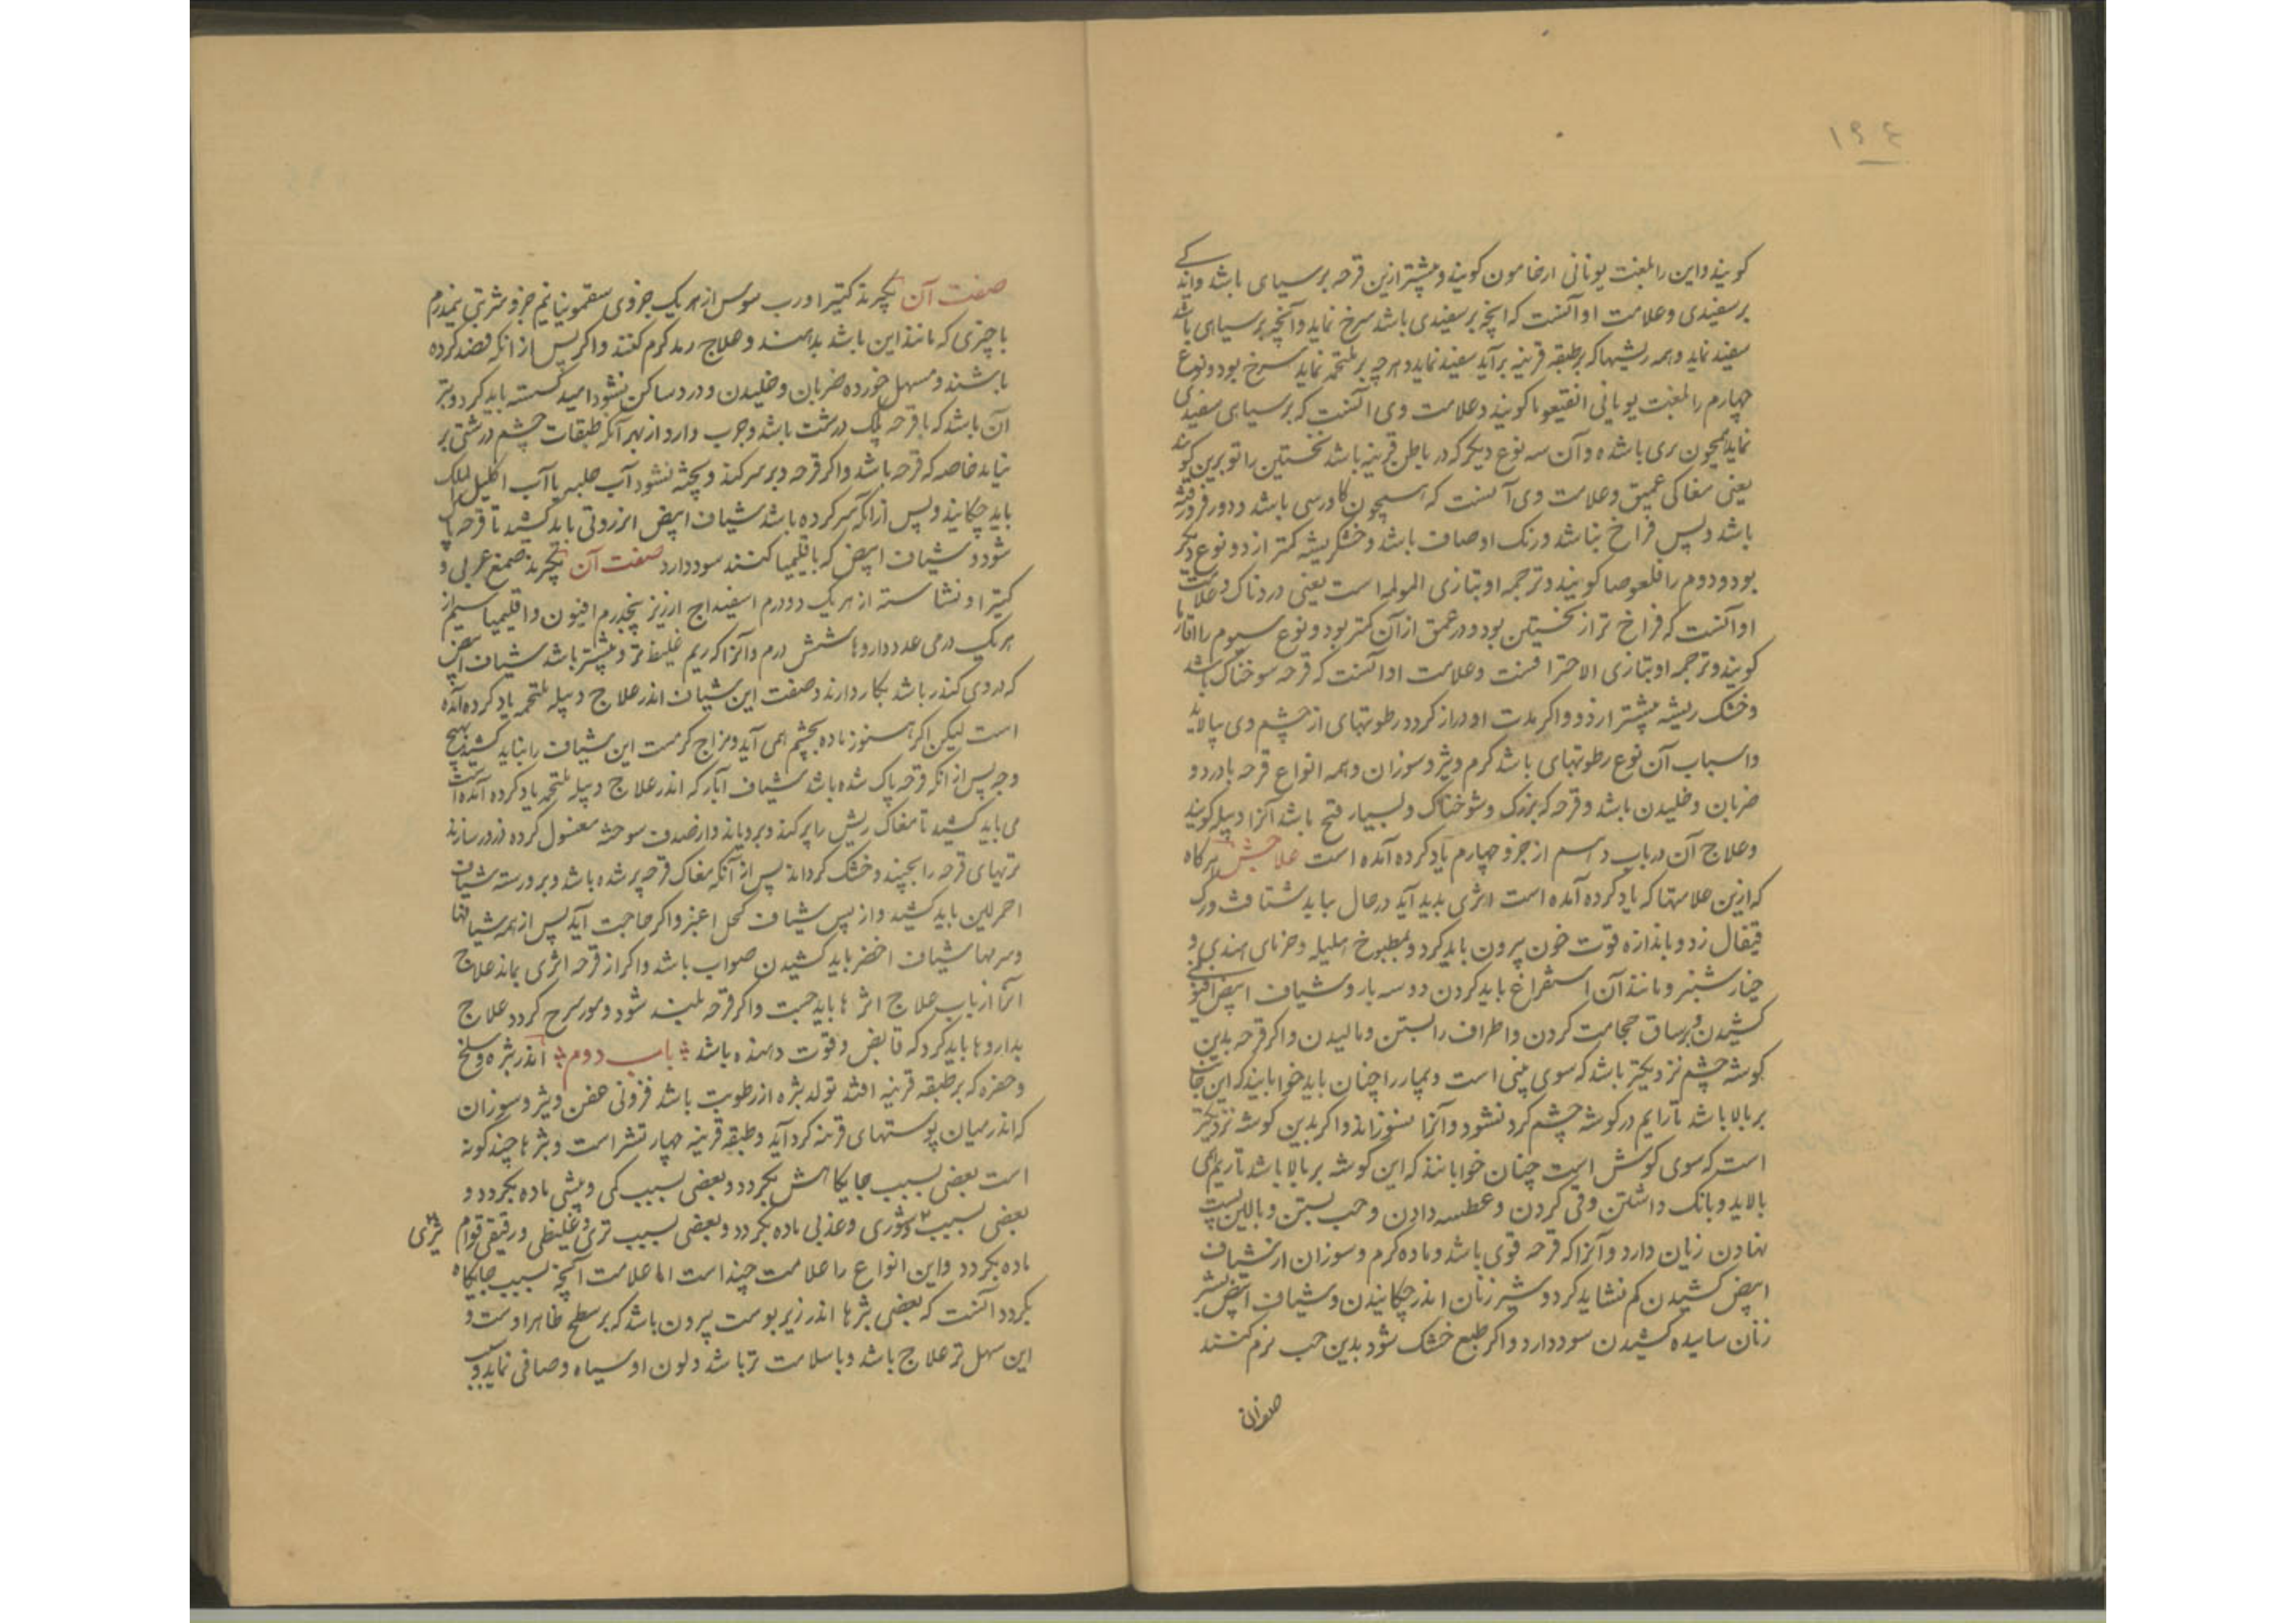 ۱۹۴
کویند و این را بلغت یونانی ارخامون کویند و بیشتر ازین قرحه بر سیاهی باشد و اندکی
بر سفیدی و علامت او آنست که انچه بر سفیدی باشد سرخ نماید و آنچه بر سیاهی باشد
سفید نماید و همه ریشها که بر طبقه قرینه برآید سفید نماید و هرچه بر ملتحمه نماید سرخ بود و نوع
چهارم را بلغت یونانی انقیعوما کویند و علامت وی آنست که بر سیاهی سفیدی
نماید همچون بری باشد و آن سه نوع دیکر که در باطن قرینه باشد نخستین را توبرین کویند
یعنی مغاکی عمیق و علامت وی آنست که همچون کاورسی باشد و دور فرو رفته
باشد و بس فراخ نباشد و رنک او صاف باشد و خشکریشه کمتر از دو نوع دیکر
بود و دوم را قلعوصا کویند و ترجمه او بتازی المولمه است یعنی دردناک و علامت
او آنست که فراخ تر از نخستین بود و در عمق از آن کمتر بود و نوع سیوم را
کویند و ترجمه او بتازی الاحتراقست و علامت او آنست که قرحه سوخناک باشد
و خشک ریشه بیشتر ازدو و اکر مدت او دراز کردد رطوبتهای از چشم وی بپالاید
و اسباب آن نوع رطوبتهای باشد کرم و تیز و سوزان و همه انواع قرحه با درد و
ضربان و خلیدن باشد و قرحه که بزرک و شوخناک و بسیار قیح باشد آنرا دبیله کویند
و علاج آن در باب دهم از جزو چهارم یاد کرده آمده است علاجش هر کاه
که ازین علامتها که یاد کرده آمده است اثری بدید آید در حال بباید شتافت و رک
قیفال زد و باندازه قوت خون بیرون باید کرد و بمطبوخ هلیله و خرمای هندی و
خیار شنبر و مانند آن استفراغ باید کردن دو سه بار و شیاف ابیض افیونی
کشیدن و بر ساق حجامت کردن و اطراف را بستن و مالیدن و اکر قرحه بدین
کوشه چشم نزدیکتر باشد که سوی بینی است و بیمار را چنان باید خوابانید که این جانب
بر بالا باشد تا رایم در کوشه چشم کرد نشود و آنرا نسوزاند و اکر بدین کوشه نزدیکتر
است که سوی کوش است چنان خوابانند که این کوشه بر بالا باشد تا ریم همی
بالاید و بانک داشتن و قی کردن و عطسه دادن و حب بستن و بالین پست
نهادن زیان دارد و آنرا که قرحه قوی باشد و ماده کرم و سوزان از شیاف
ابیض کشیدن کم نشاید کرد و شیر زنان اندر چکانیدن و شیاف ابیض بشیر
زنان سائیده کشیدن سود دارد و اکر طبع خشک شود بدین حب نرم کنند
صفت آن
صفت آن بکیرند کتیرا و رب سوس از هر یک جزوی سقمونیا نیم جزو شربتی نیمدرم
با چیزی که مانند این باشد بدهند و علاج رمد کرم کنند و اکر پس از انکه فصد کرده
باشند و مسهل خورده ضربان و خلیدن و درد ساکن نشود امید کسسته باید کرد و بتر
آن باشد که با قرحه پلک درشت باشد و جرب دارد از بهر آنکه طبقات چشم درشتی بر
نتابد خاصه که قرحه باشد و اکر قرحه دیر سر کند و پخته نشود آب حلبه یا آب اکلیل الملک
باید چکانید و پس از آنکه سر کرده باشد شیاف ابیض انزروتی باید کشید تا قرحه پاک
شود و شیاف ابیض که باقلیمیا کنند سود دارد صفت آن بکیرند صمغ عربی و
کتیرا و نشاسته از هر یک دو درم اسفیداج ارزیز پنجدرم افیون و اقلیمیا سیم از
هر یک درمی عدد داروها شش درم و آنرا که ریم غلیظ تر و بیشتر باشد شیاف ابیض
که در وی کندر باشد بکار دارند و صفت این شیاف اندر علاج دبیله ملتحمه یاد کرده آمده
است لیکن اکر هنوز ماده بچشم همی آید و مزاج کرمست این شیاف را نباید کشید بهیچ
وجه پس از انکه قرحه پاک شده باشد شیاف آبار که اندر علاج دبیله ملتحمه یاد کرده آمده است
می باید کشید تا مغاک ریش را پر کند و برویاند و از صدف سوخته مغسول کرده ذرور سازند
تریهای قرحه را بچیند و خشک کرداند پس از آنکه مغاک قرحه پر شده باشد و بر و رسته شیاف
احمر لین باید کشید و از پس شیاف کحل اغبر و اکر حاجت آید پس از همه شیافها
و سرمها شیاف اخضر باید کشیدن صواب باشد و اکر از قرحه اثری بماند علاج
آنرا از باب علاج اثرها باید جست و اکر قرحه بلند شود و مورسرج کردد علاج
بداروها باید کرد که قابض و قوت دهنده باشد باب دوم اندر بثره و سلخ
و حفره که بر طبقه قرینه افتد تولد بثره از رطوبت باشد فزونی عفن و تیز و سوزان
که اندر میان پوستهای قرینه کرد آید و طبقه قرینه چهار تشر است و بثرها چند کونه
است بعضی بسبب جایکاهش بکردد و بعضی بسبب کمی و بیشی ماده بکردد و
بعضی بسبب شوری و عذبی ماده بکردد و بعضی بسبب تری و غلیظی و رقیقی قوام
تیزی
ماده بکردد و این انواع را علامت چند است اما علامت آنچه بسبب جایکاه
بکردد آنست که بعضی بثرها اندر زیر پوست بیرون باشد که بر سطح ظاهر اوست و
این سهل تر علاج باشد و با سلامت تر باشد و لون او سیاه و صافی نماید و سبب